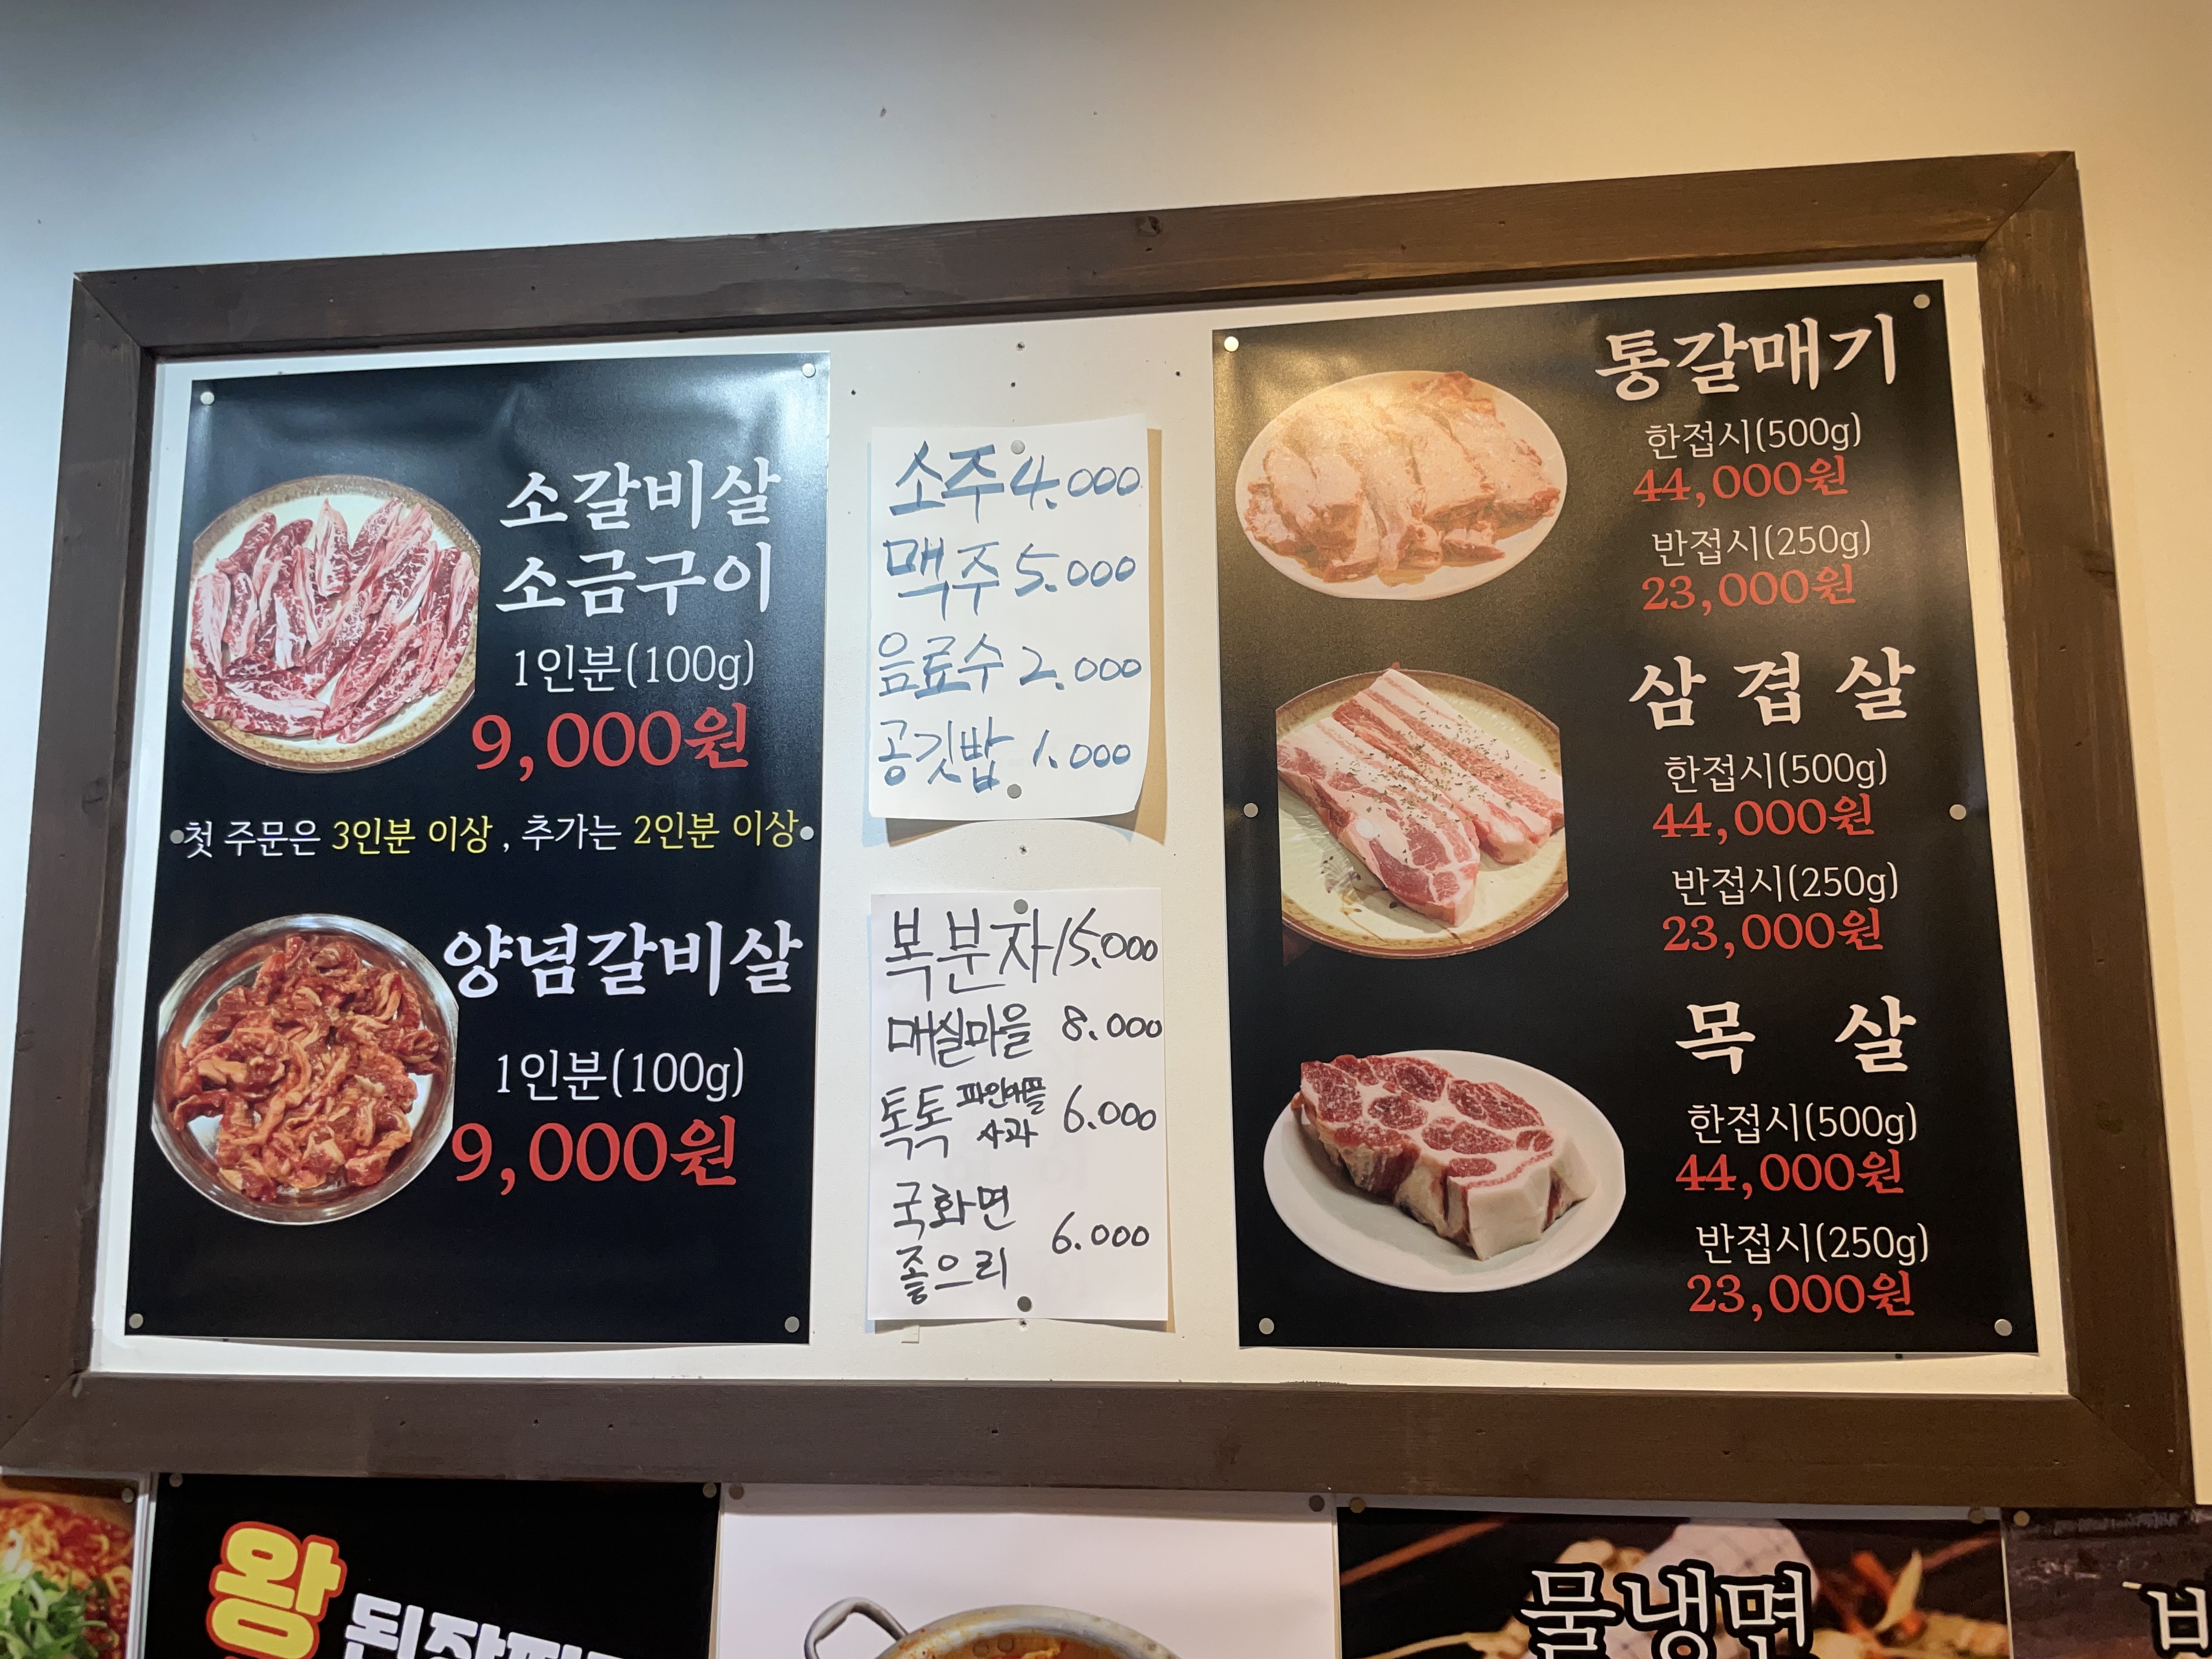 소갈비살
소금구이
1인분(100g)
9,000원
첫 주문은 3인분 이상, 추가는 2인분 이상
양념갈비살
1인분(100g)
9,000원
소주 4.000
맥주 5.000
음료수 2.000
공깃밥 1.000
복분자 15.000
매실마을 8.000
톡톡 파인애플 사과 6.000
국화면
좋으리 6.000
통갈매기
한접시(500g)
44,000원
반접시(250g)
23,000원
삼겹살
한접시(500g)
44,000원
반접시(250g)
23,000원
목살
한접시(500g)
44,000원
반접시(250g)
23,000원
왕
물냉면